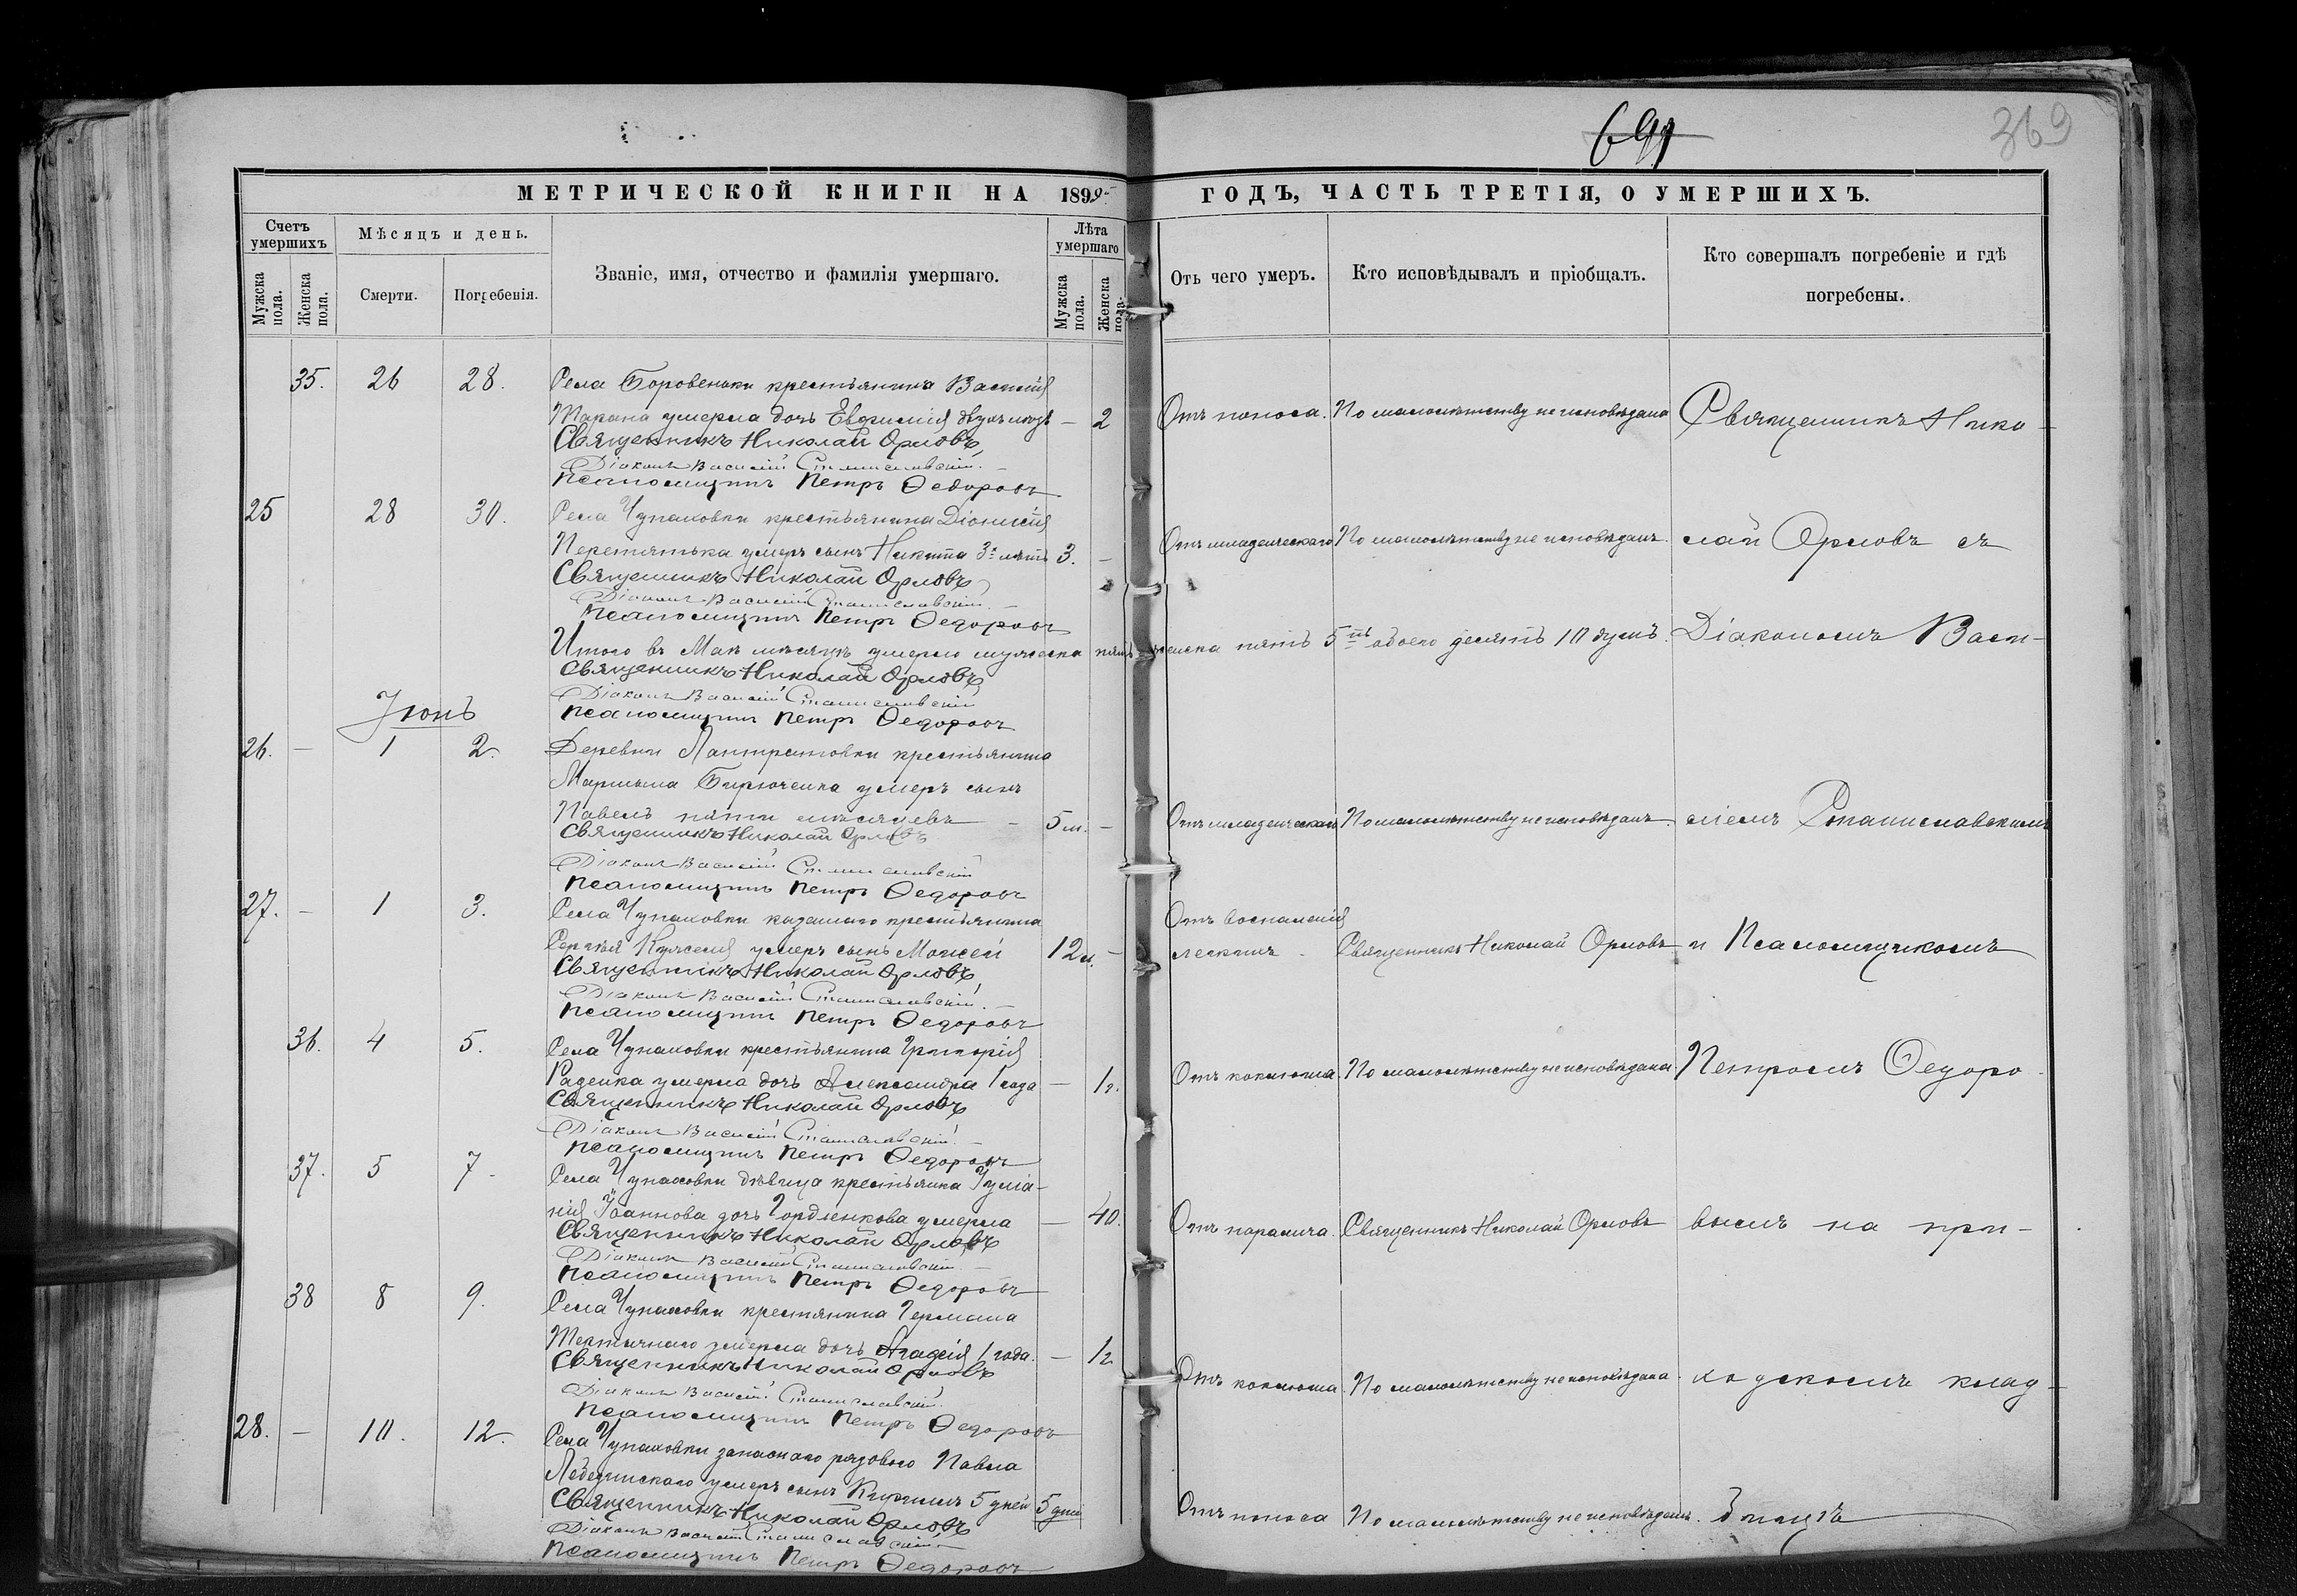 699
369
МЕТРИЧЕСКОЙ КНИГИ НА 1895
ГОДЪ, ЧАСТЬ ТРЕТІЯ, О УМЕРШИХЪ.
Счетъ умершихъ
Мужска пола.
Женска пола.
Мѣсяцъ и день.
Смерти.
Погребенія.
Званіе, имя, отчество и фамилія умершаго.
Лѣта умершаго
Мужска пола.
Женска пола.
Отъ чего умеръ.
Кто исповѣдывалъ и пріобщалъ.
Кто совершалъ погребеніе и гдѣ
погребены.
35. 26 28. Села Боровеньки крестьянина Василія
умерла дочь Евфимія двухъ лѣтъ — 2 Отъ поноса. По малолѣтству не исповѣдана Священникъ Нико-
Священникъ Николай Орловъ
Діаконъ Василій Станиславскій.
Псаломщикъ Петръ Ѳедоровъ
25 28 30. Села Чупаховки крестьянина Діонисія
Перетятька умеръ сынъ Никита 3х лѣтъ 3. — Отъ младенческаго По малолѣтству не исповѣданъ. лай Орловъ съ
Священникъ Николай Орловъ
Діаконъ Василій Станиславскій.
Псаломщикъ Петръ Ѳедоровъ
Итого въ Маѣ мѣсяцѣ умерло мужеска пять женска пять 5ть обоего десять 10 душъ. Діакономъ Васи-
Священникъ Николай Орловъ
Діаконъ Василій Станиславскій
Псаломщикъ Петръ Ѳедоровъ
Іюнь
26. — 1 2. Деревни Лантратовки крестьянина
Бирюченка умеръ сынъ
Павелъ пяти мѣсяцевъ — 5 м. — Отъ младенческой По малолѣтству не исповѣданъ. ліемъ Станиславскимъ
Священникъ Николай Орловъ
Діаконъ Василій Станиславскій
Псаломщикъ Петръ Ѳедоровъ
27. — 1 3. Села Чупаховки казеннаго крестьянина
Сергѣя умеръ сынъ Моисей 12 л. — Отъ воспаленія
легкихъ Священникъ Николай Орловъ и Псаломщикомъ
Священникъ Николай Орловъ
Діаконъ Василій Станиславскій.
Псаломщикъ Петръ Ѳедоровъ
36. 4 5. Села Чупаховки крестьянина Григорія
Раденка умерла дочь Александра 1 года — 1 г. Отъ коклюша. По малолѣтству не исповѣдана. Петромъ Ѳедоро-
Священникъ Николай Орловъ
Діаконъ Василій Станиславскій.
Псаломщикъ Петръ Ѳедоровъ
37. 5 7. Села Чупаховки дѣвица крестьянка Іулiа-
нія Іоаннова дочь Гордіенкова умерла — 40. Отъ паралича. Священникъ Николай Орловъ вымъ на при-
Священникъ Николай Орловъ
Діаконъ Василій Станиславскій.
Псаломщикъ Петръ Ѳедоровъ
38 8 9. Села Чупаховки крестянина Германа
умерла дочь Агафія 1 года. — 1 г. Отъ коклюша. По малолѣтству не исповѣдана. ходскомъ клад-
Священникъ Николай Орловъ
Діаконъ Василій Станиславскій.
Псаломщикъ Петръ Ѳедоровъ
28. — 10. 12. Села Чупаховки запаснаго рядового Павла
Лебединскаго умеръ сынъ Кириллъ 5 дней 5 дней Отъ поноса По малолѣтству не исповѣданъ. бищѣ
Священникъ Николай Орловъ
Діаконъ Василій Станиславскій
Псаломщикъ Петръ Ѳедоровъ